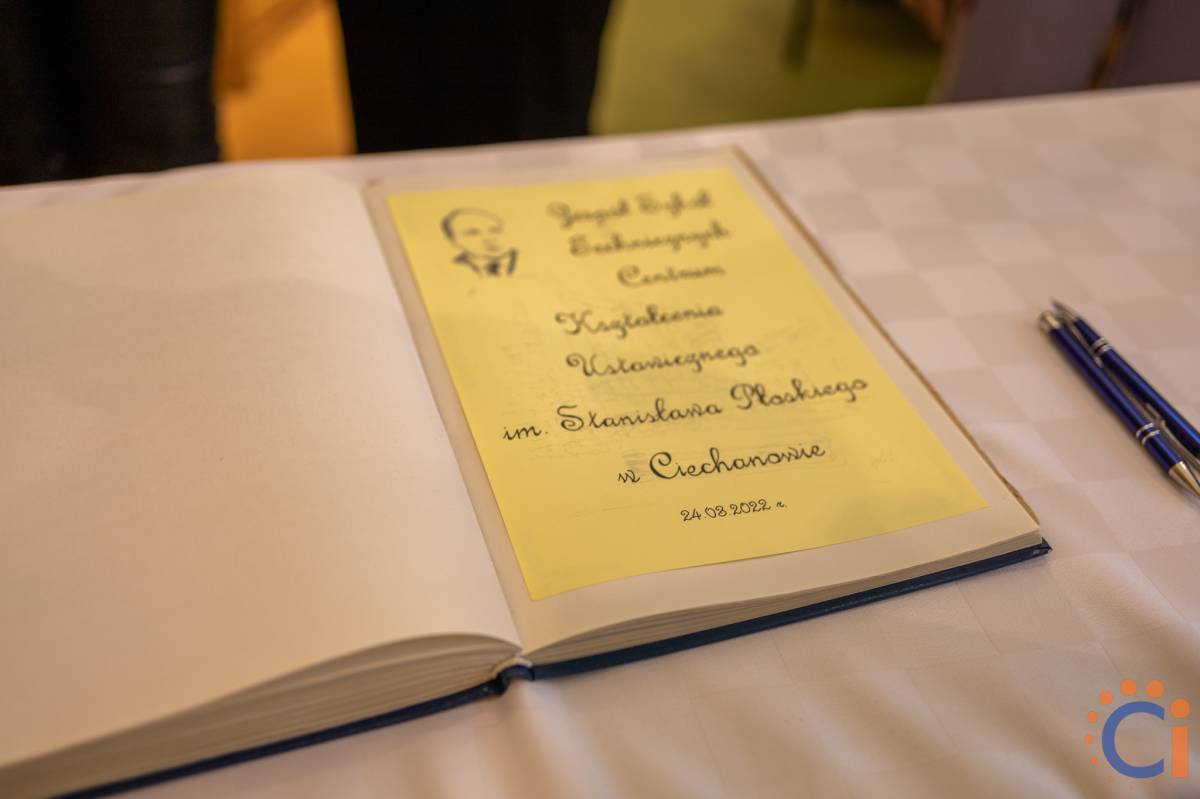 Zespół Szkół
Technicznych
Centrum
Kształcenia
Ustawicznego
im. Stanisława Płoskiego
w Ciechanowie
24.08.2022 r.
Ci